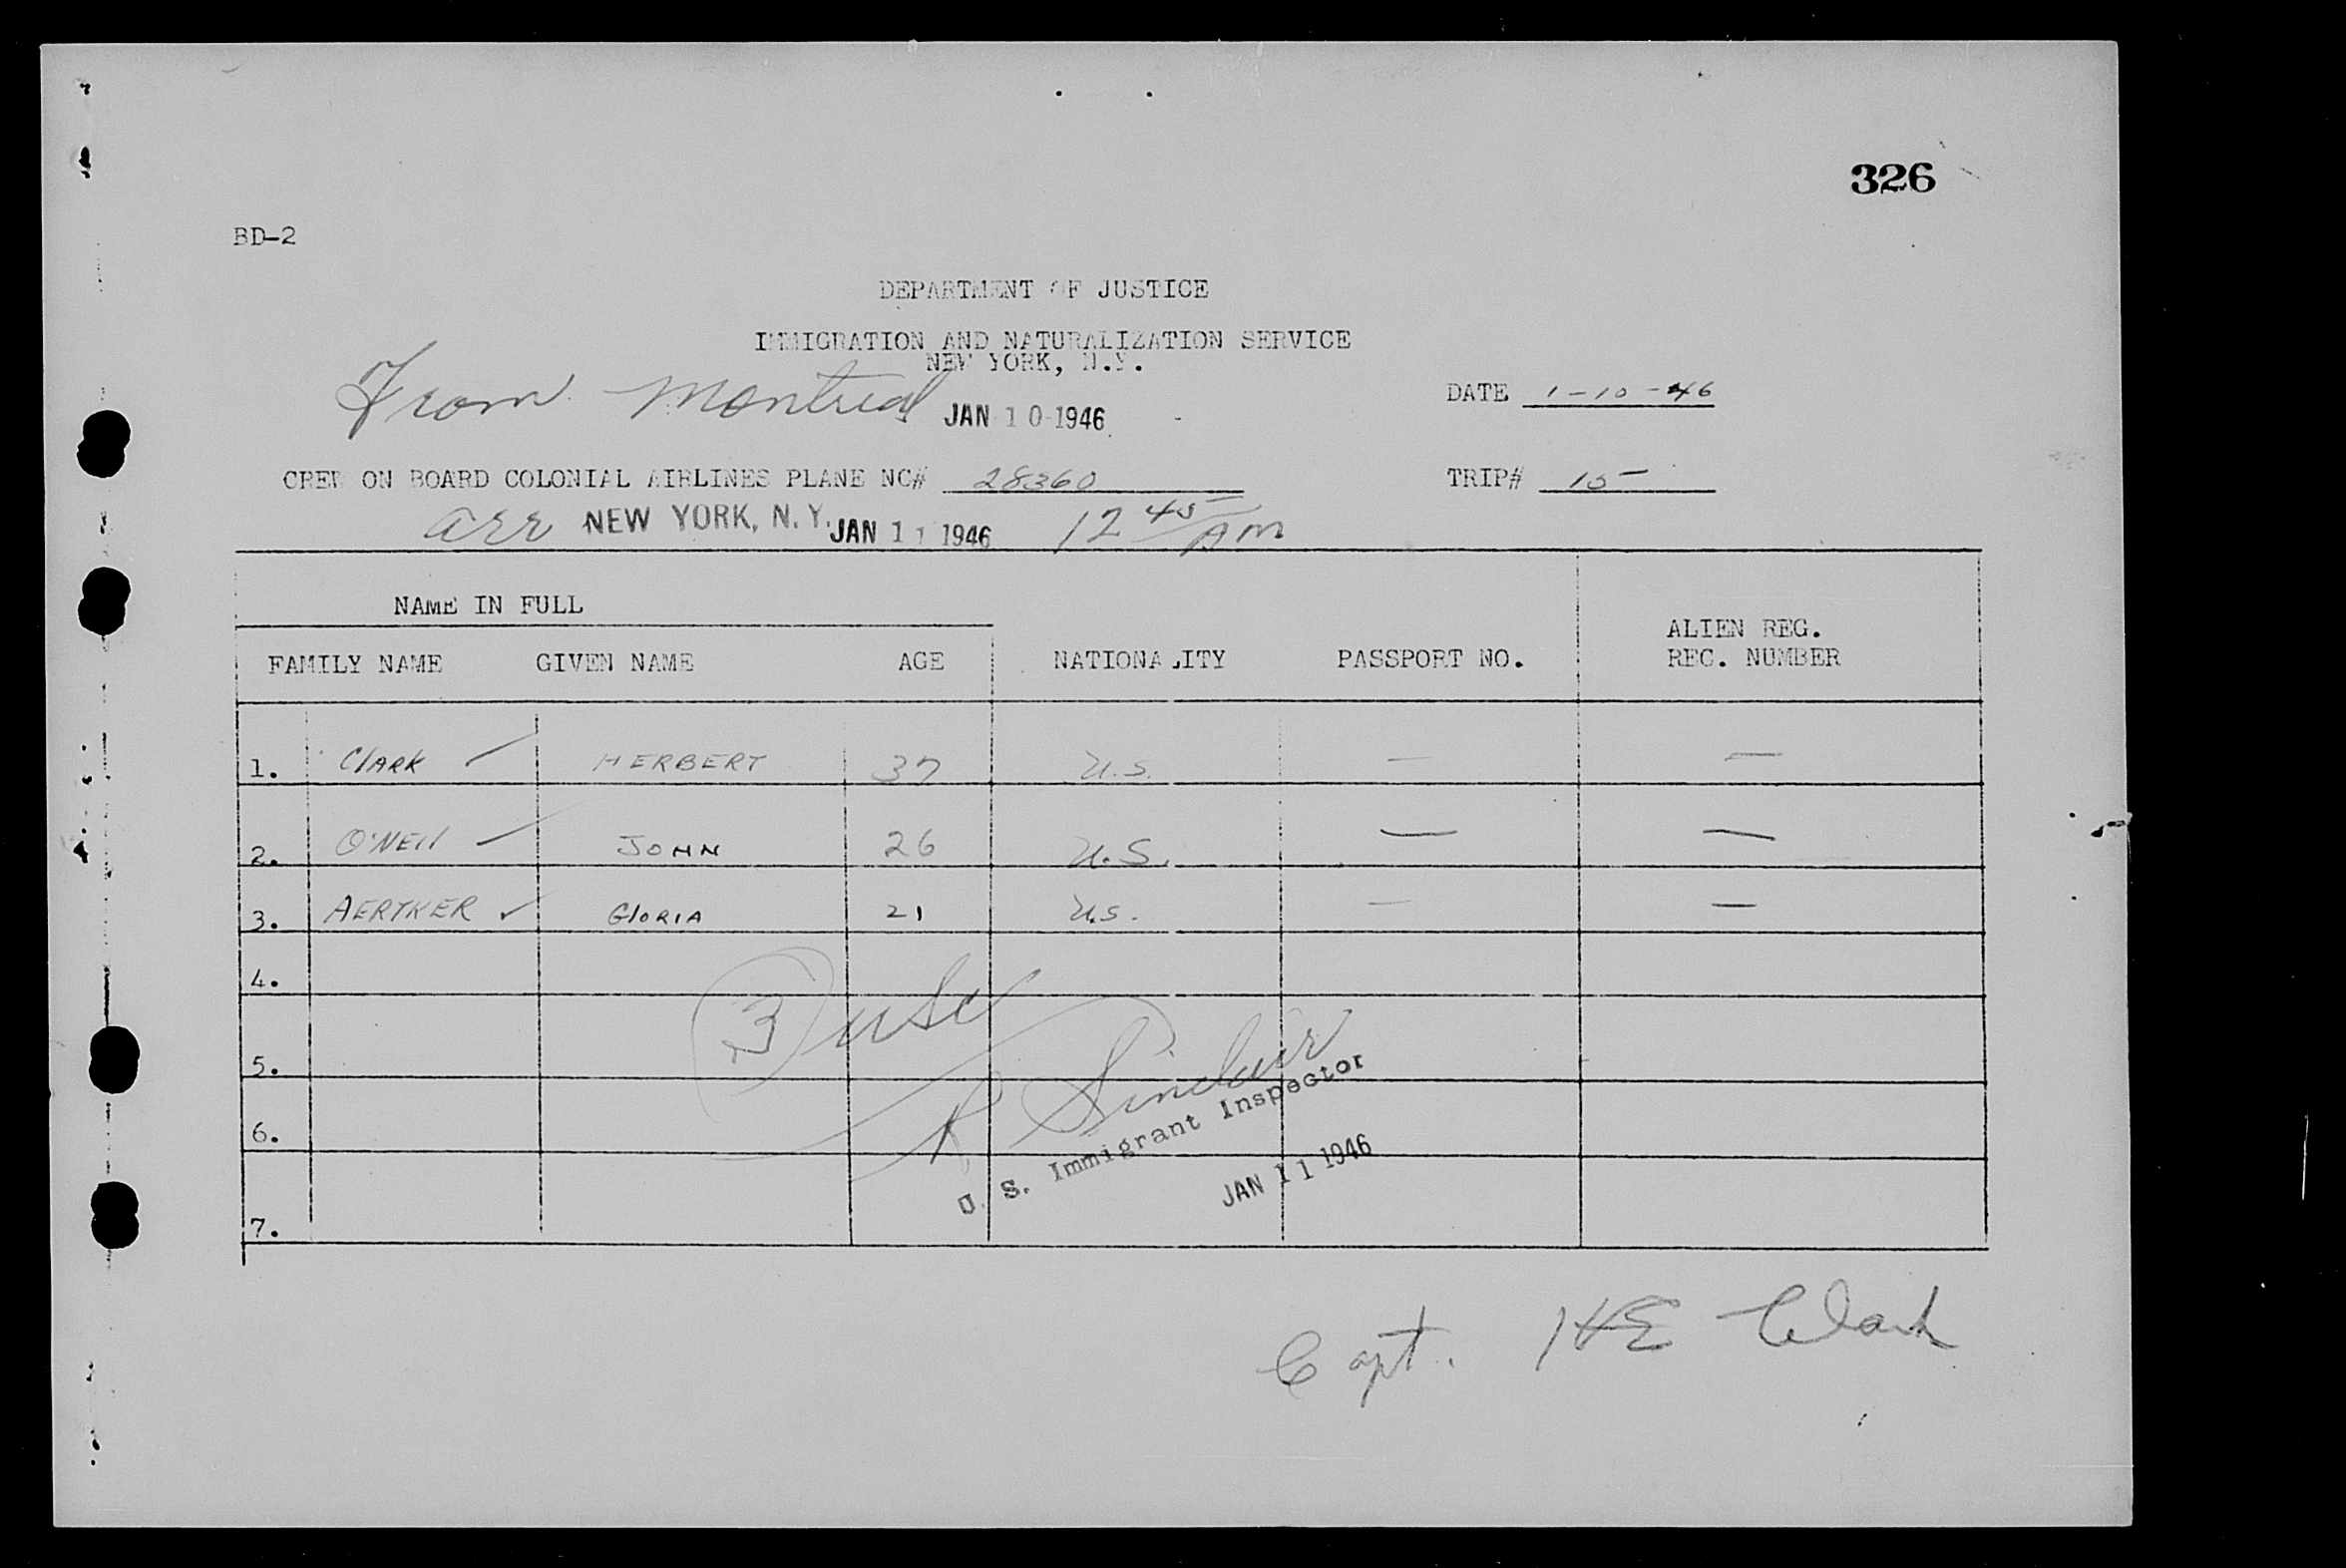 326
BD-2
DEPARTMENT OF JUSTICE
IMMIGRATION AND NATURALIZATION SERVICE
NEW YORK, N.Y.
From Montreal JAN 10 1946
DATE 1-10-46
CREW ON BOARD COLONIAL AIRLINES PLANE NC# 28360
TRIP# 15
arr NEW YORK, N.Y. JAN 11 1946 12 45 AM
NAME IN FULL
FAMILY NAME GIVEN NAME AGE NATIONALITY PASSPORT NO. ALIEN REG. REC. NUMBER
1. Clark ✓ HERBERT 37 U.S. — —
2. O'Neil ✓ JOHN 26 U.S. — —
3. AERTKER ✓ GLORIA 21 U.S. — —
4.
5.
6.
7.
3 USC
R Sinclair
U. S. Immigrant Inspector
JAN 11 1946
Capt. HE Clark